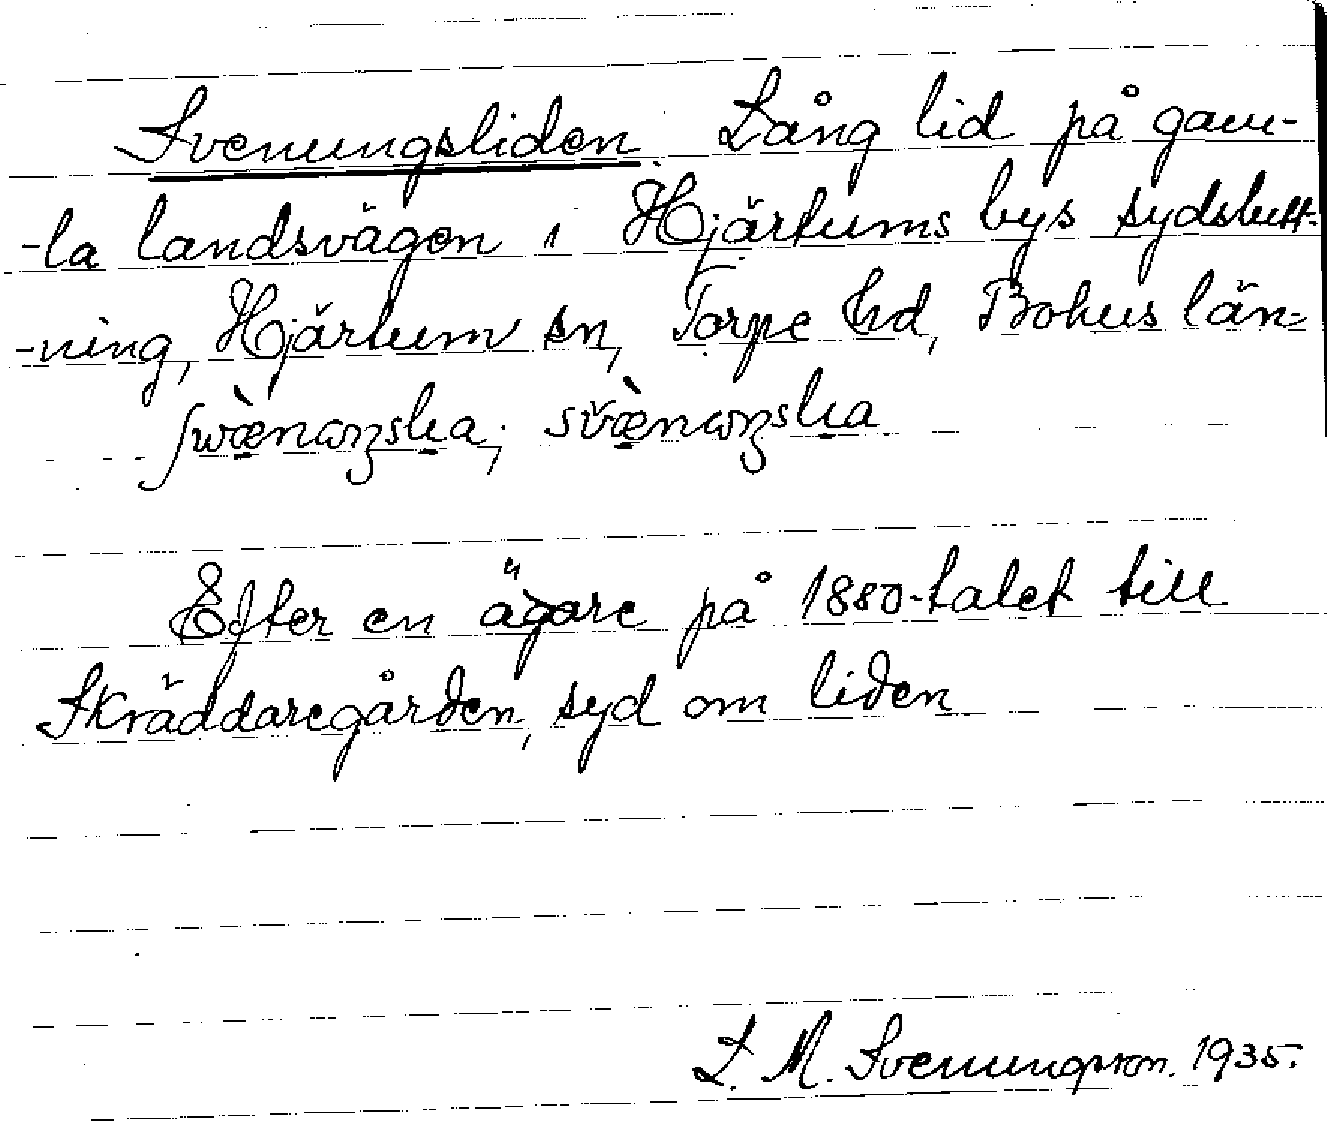 Svenungsliden. Lång lid på gam-
-la landsvägen i Hjärtums bys sydslutt-
-ning, Hjärtum sn, Torpe hd, Bohus län
Efter en ägare på 1880-talet till
Skräddaregården, syd om liden
L. M. Svenungsson. 1935.